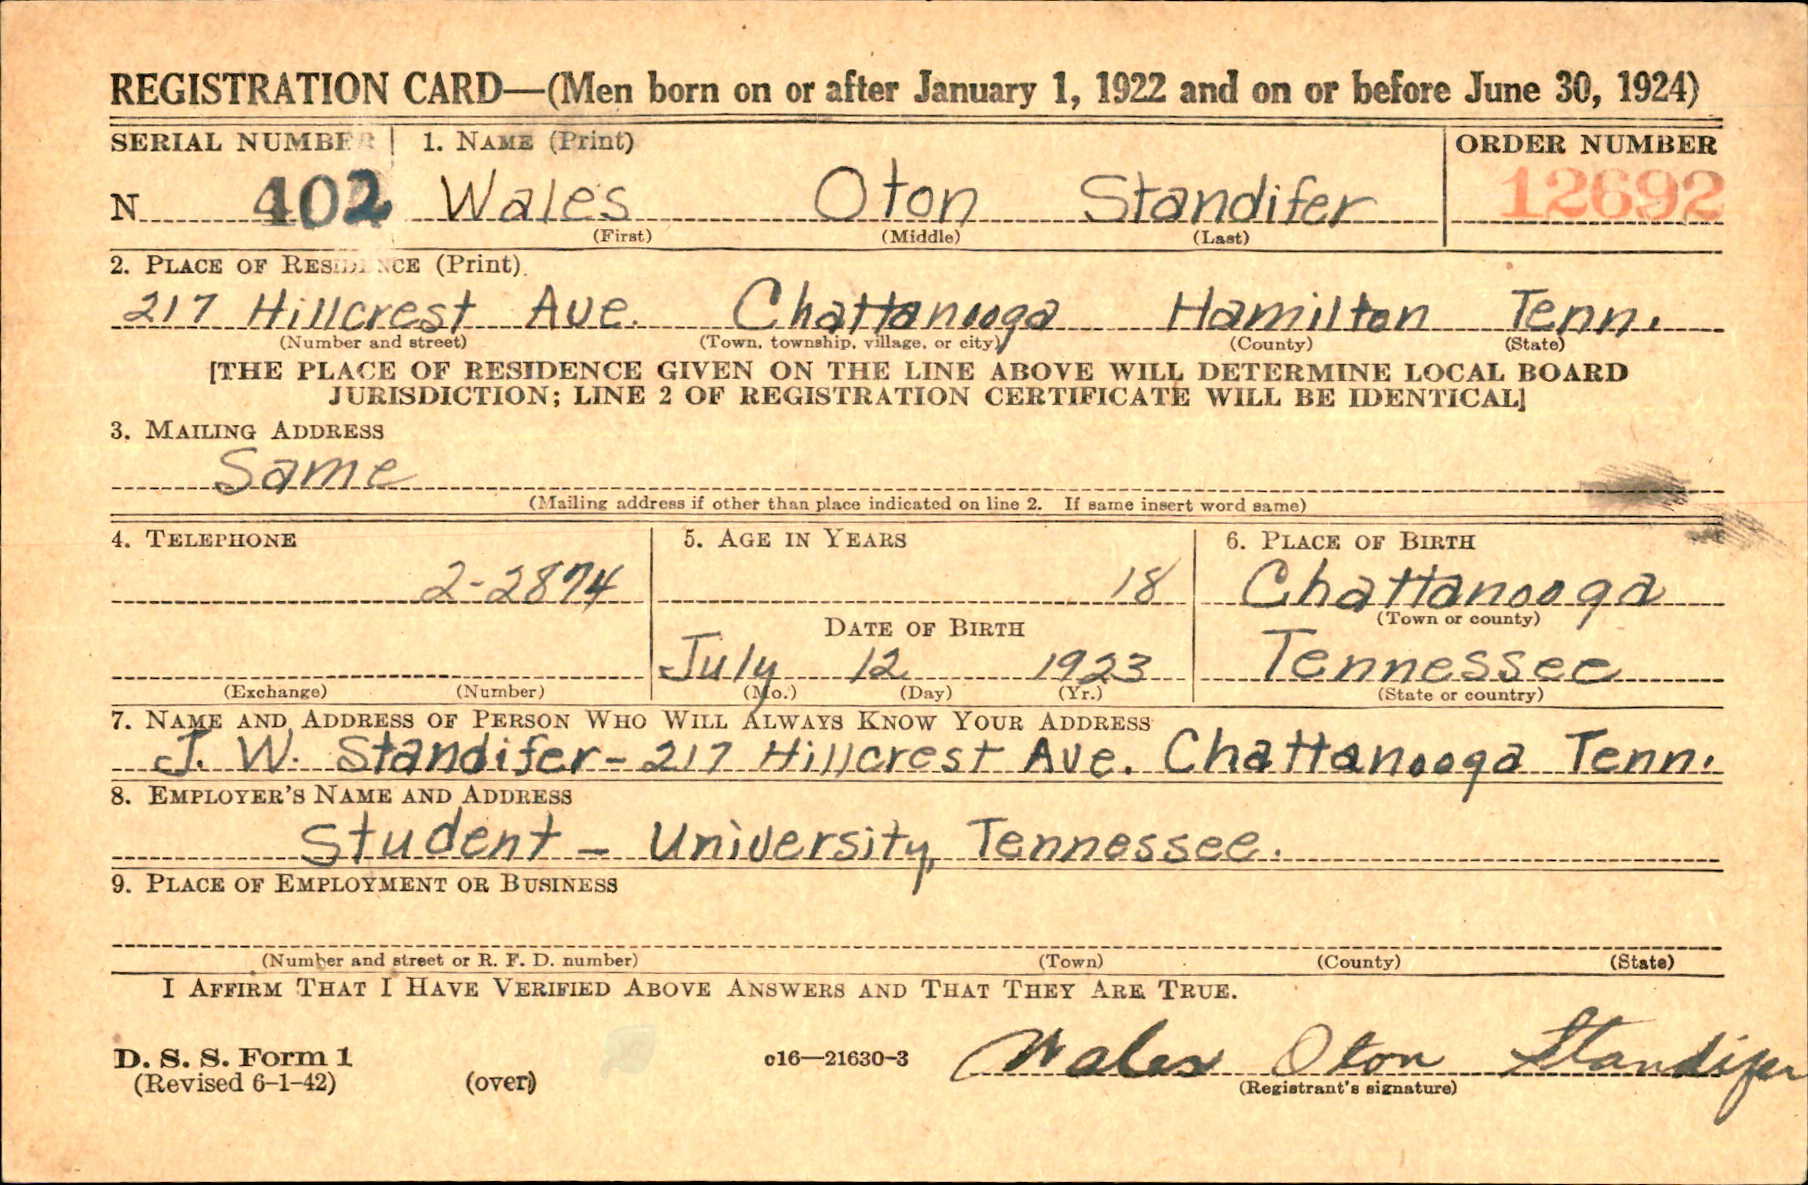 REGISTRATION CARD—(Men born on or after January 1, 1922 and on or before June 30, 1924)
SERIAL NUMBER 1. NAME (Print) ORDER NUMBER
N 402 Wales Oton Standifer 12692
(First) (Middle) (Last)
2. PLACE OF RESIDENCE (Print)
217 Hillcrest Ave. Chattanooga Hamilton Tenn.
(Number and street) (Town, township, village, or city) (County) (State)
[THE PLACE OF RESIDENCE GIVEN ON THE LINE ABOVE WILL DETERMINE LOCAL BOARD
JURISDICTION; LINE 2 OF REGISTRATION CERTIFICATE WILL BE IDENTICAL]
3. MAILING ADDRESS
Same
(Mailing address if other than place indicated on line 2. If same insert word same)
4. TELEPHONE 5. AGE IN YEARS 6. PLACE OF BIRTH
2-2874 18 Chattanooga
(Town or county)
DATE OF BIRTH
July 12 1923 Tennessee
(Exchange) (Number) (Mo.) (Day) (Yr.) (State or country)
7. NAME AND ADDRESS OF PERSON WHO WILL ALWAYS KNOW YOUR ADDRESS
J. W. Standifer - 217 Hillcrest Ave. Chattanooga Tenn.
8. EMPLOYER'S NAME AND ADDRESS
Student - University, Tennessee.
9. PLACE OF EMPLOYMENT OR BUSINESS
(Number and street or R. F. D. number) (Town) (County) (State)
I AFFIRM THAT I HAVE VERIFIED ABOVE ANSWERS AND THAT THEY ARE TRUE.
D. S. S. Form 1
(Revised 6-1-42) (over) c16—21630-3 Wales Oton Standifer
(Registrant's signature)